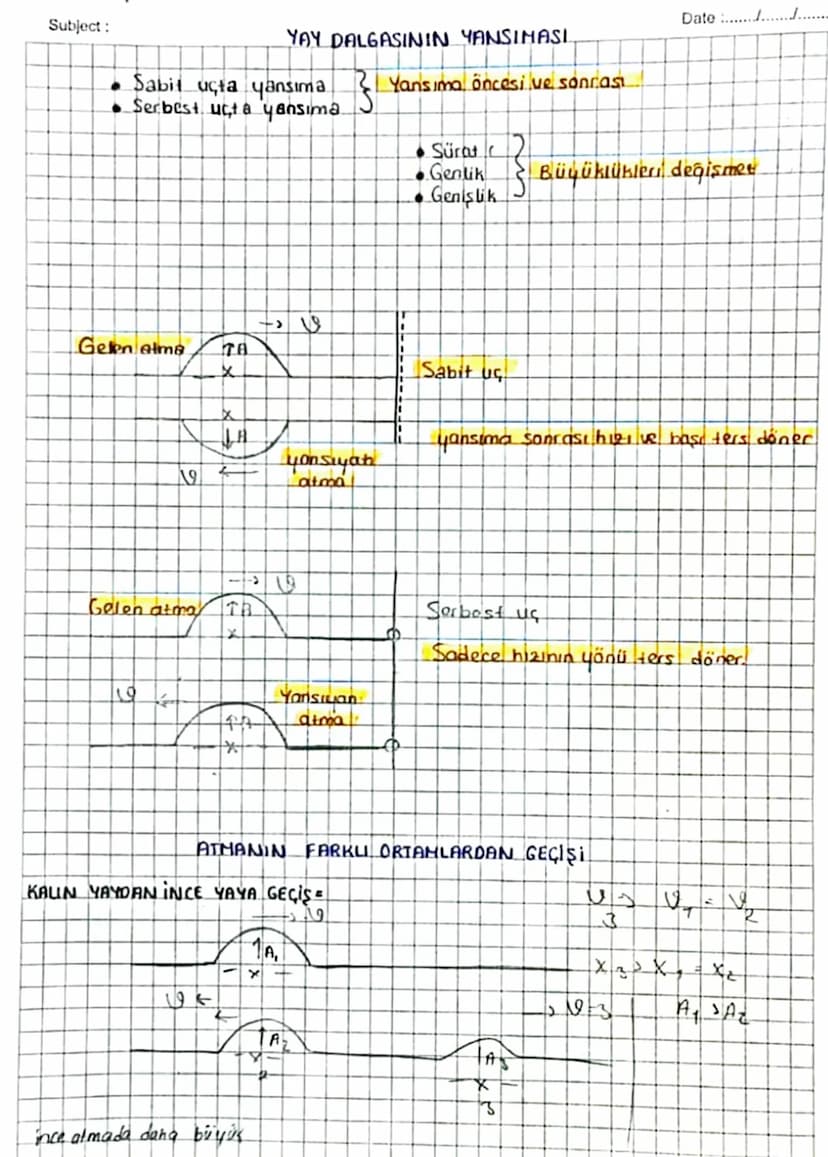 Subject :
Date :....../......./.......
YAY DALGASININ YANSIMASI
• Sabit uçta yansıma
• Serbest uçta yansıma
Yansıma öncesi ve sonrası
• Sürat
• Genlik
• Genişlik
Büyüklükleri değişmet
→ v
Gelen atma
↑A
x
Sabit uç
x
↓A
yansıma sonrası hızı ve başı ters döner
v ←
yansıyan
atma!
→ v
Gelen atma
↑A
x
Serbest uç
Sadece hızının yönü ters döner!
v ←
Yansıyan
atma!
↑A
x
ATMANIN FARKLI ORTAMLARDAN GEÇİŞİ
KALIN YAYDAN İNCE YAYA GEÇİŞ=
→ v
v3 > v1 = v2
↑A1
x
x3 > x1 = x2
v ←
→ v3
A1 > A2
↑A2
x2
↑A3
x3
ince atmada daha büyük